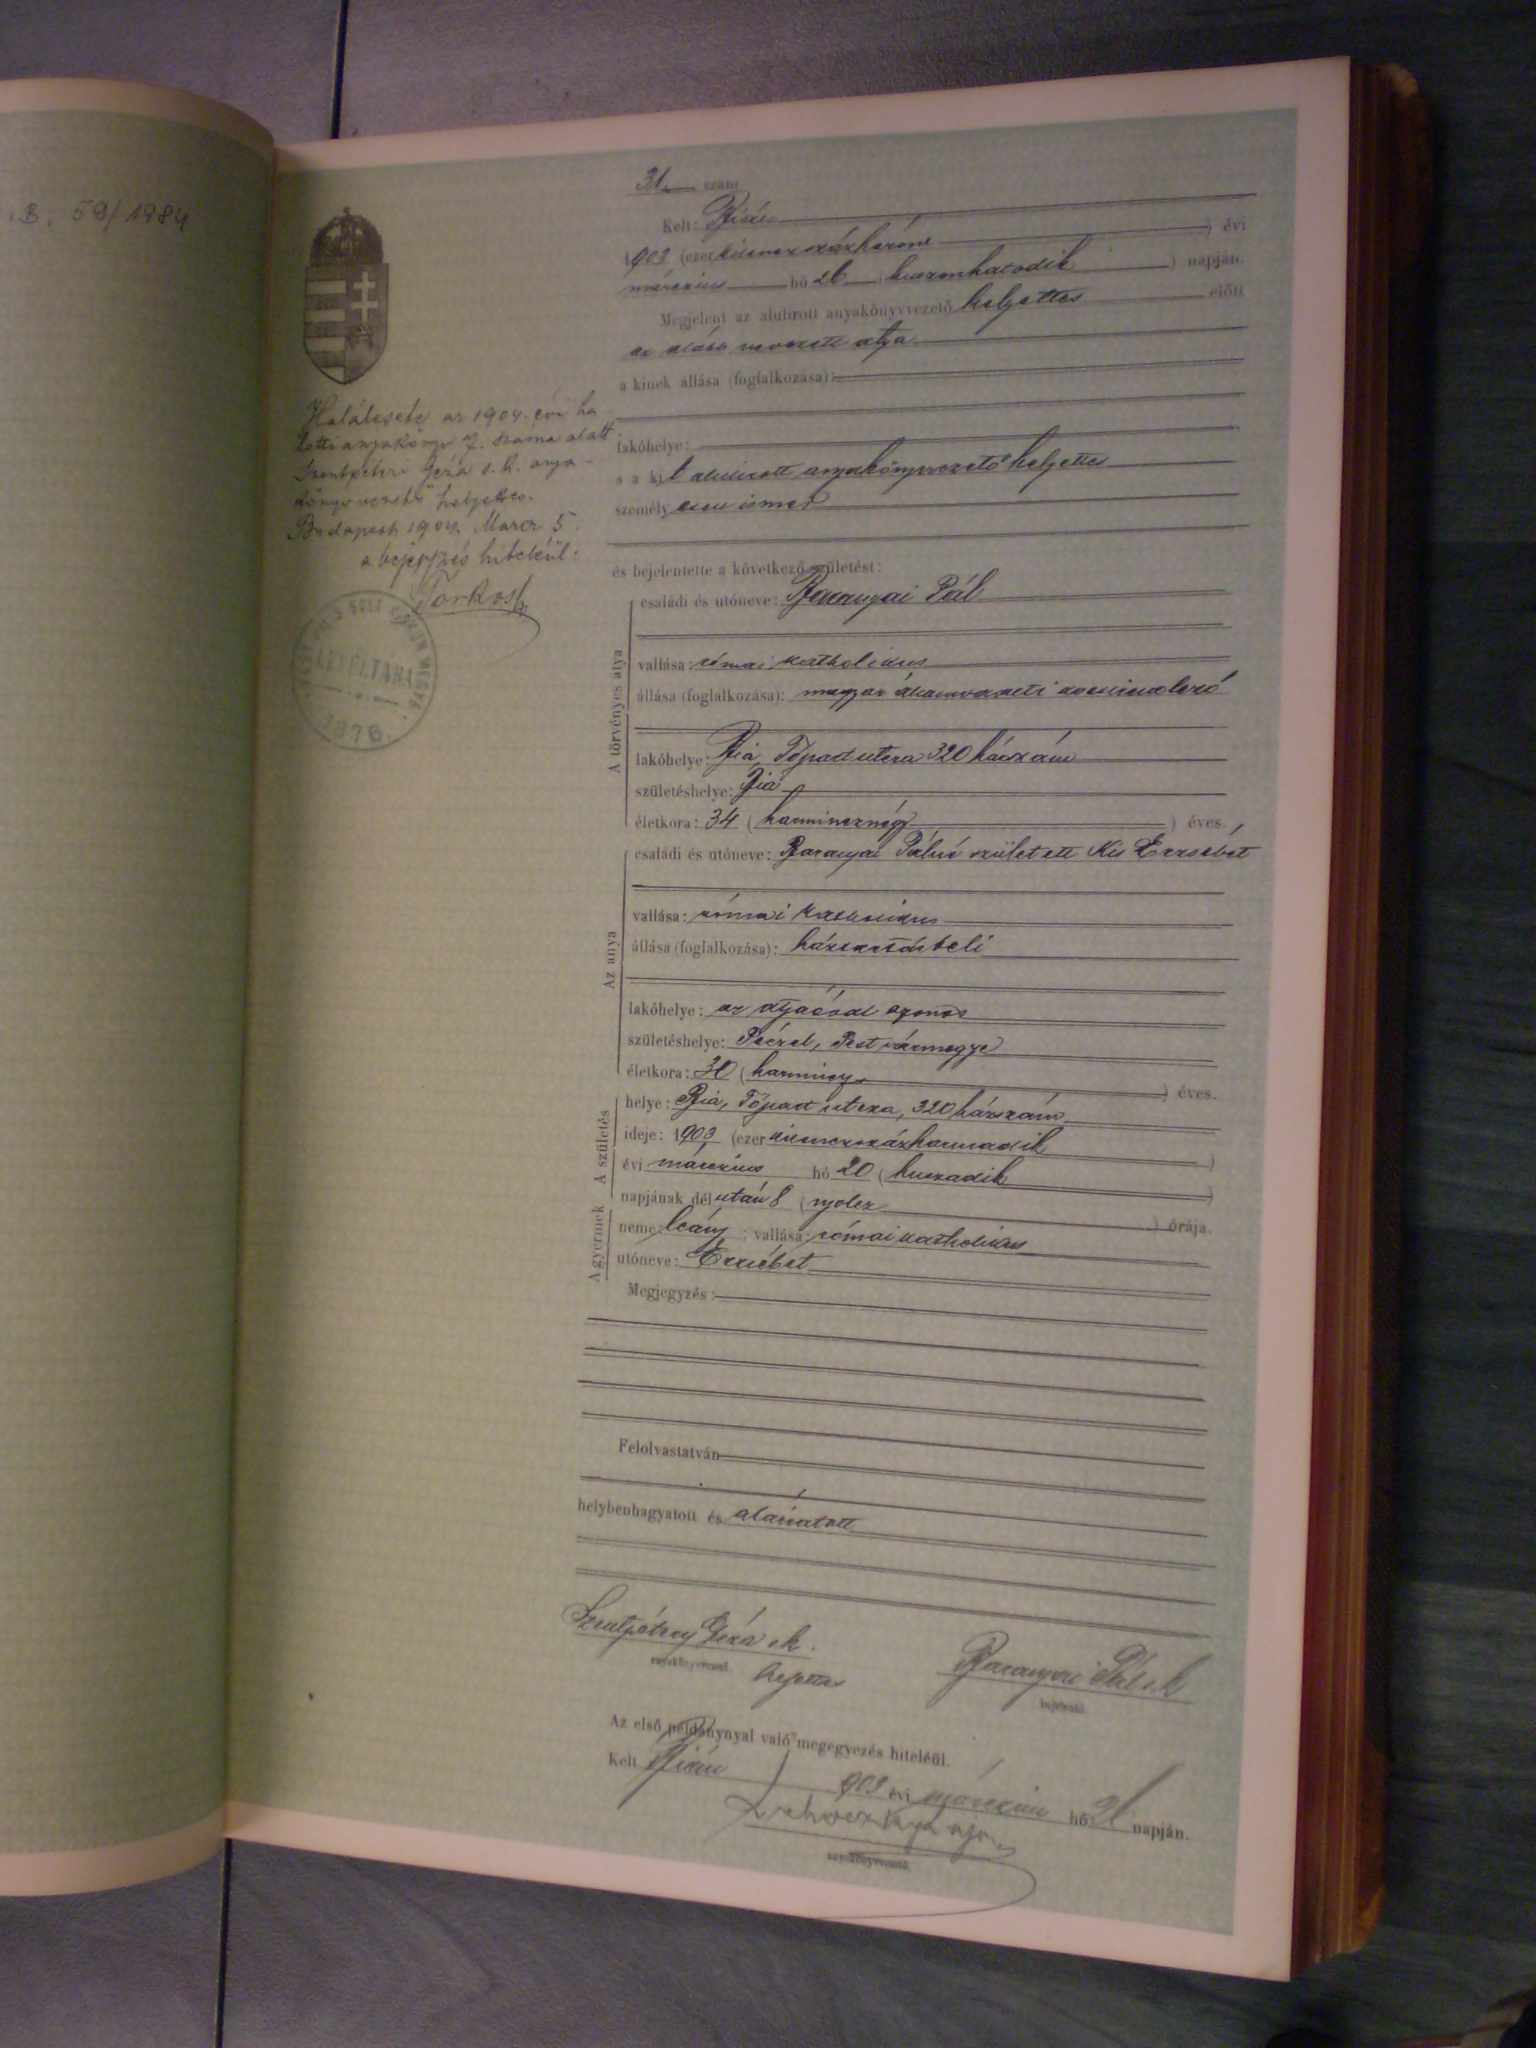 B. 59/1984
31. szám
Kelt: Bián
1903 (ezerkilenczszázhárom) évi
márczius hó 26 (huszonhatodik) napján.
Megjelent az alulirott anyakönyvvezető helyettes előtt
az alább nevezett atya
a kinek állása (foglalkozása):
lakóhelye:
s a kit alulirott anyakönyvvezető helyettes
személyesen ismer
és bejelentette a következő születést:
A törvényes atya
családi és utóneve: Baranyai Pál
vallása: római katholikus
állása (foglalkozása): magyar államvasuti
lakóhelye: Bia, Tópart utcza 320 házszám
születéshelye: Bia
életkora: 34 (harmincznégy) éves.
Az anya
családi és utóneve: Baranyai Pálné született Kis Erzsébet
vallása: római katholikus
állása (foglalkozása): háztartásbeli
lakóhelye: az atyáéval azonos
születéshelye: Péczel, Pest vármegye
életkora: 30 (harmincz) éves.
A születés
helye: Bia, Tópart utcza, 320 házszám
ideje: 1903 (ezerkilenczszázharmadik)
évi márczius hó 20 (huszadik)
napjának délután 8 (nyolcz) órája.
A gyermek
neme: leány; vallása: római katholikus
utóneve: Erzsébet
Megjegyzés:
Felolvastatván
helybenhagyatott és aláiratott
Szentpétery Géza s.k.
anyakönyvvezető helyettes
Baranyai Pál s.k.
bejelentő.
Az első példánynyal való megegyezés hiteléül.
Kelt Bián 1903 évi márczius hó 26 napján.
anyakönyvvezető
Halálesete az 1904. évi ha-
lotti anyakönyv 7. száma alatt
Szentpéteri Géza s.k. anya-
könyvvezető helyettes.
Budapest 1904. Marcz 5.
a bejegyzés hiteléül:
Torkos
PEST PILIS SOLT KISKUN MEGYE
LEVÉLTÁRA
1876